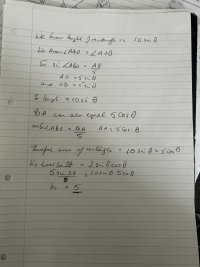 We know length of rectangle is 10 sinθ
We know ∠ABO = ∠AOθ
So sin ∠ABO = AO
5
AO = 5 sinθ
and OD = 5 sinθ
So length = 10 sinθ
BA can also equal 5 cosθ
BA = 5 cosθ
5
Therefore area of rectangle = 10 sinθ × 5 cosθ
We know sin 2θ = 2 sinθ cosθ
5 sin 2θ , 10 sinθ 5 cosθ
k = 5